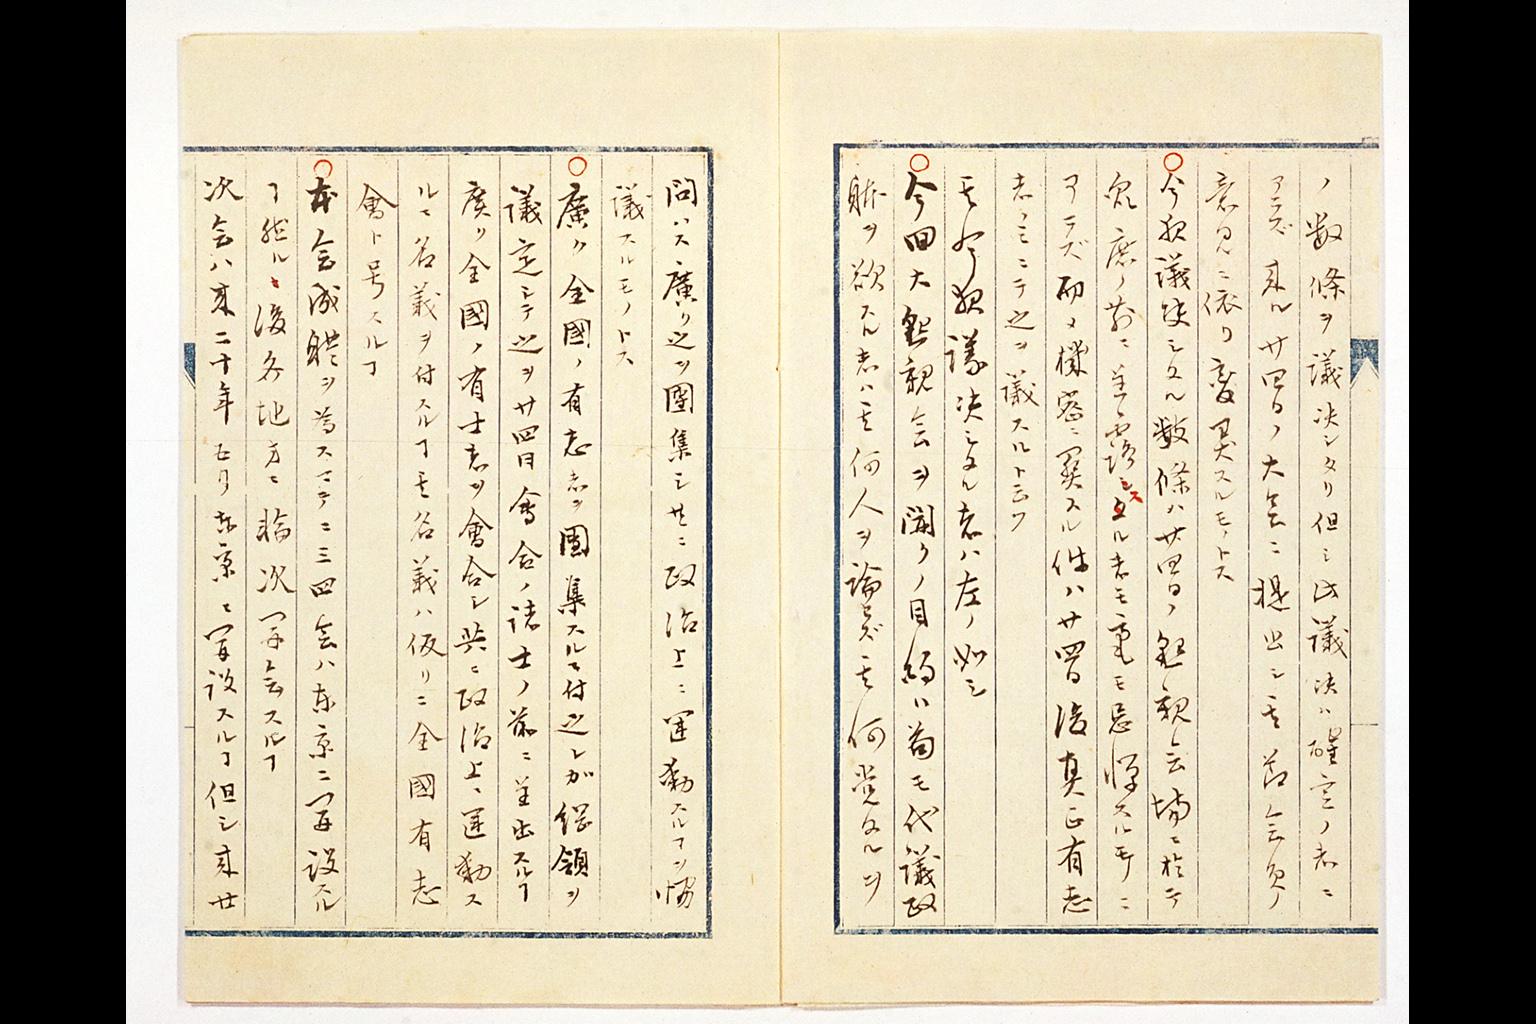 ノ数條ヲ議决シタリ但シ此議决ハ確定ノ者ニ
アラズ来ル廿四日ノ大会ニ提出シ其節会員ノ
意見ニ依リ変更スルモノトス
○今夜議决シタル数條ハ廿四日ノ懇親会場ニ於テ
衆庶ノ前ニ呈露シスル者モ毫モ忌憚スルモノニ
アラズ而メ機密ニ関スル件ハ廿四日後真正有志
者ノミニテ之ヲ議スルト云フ
其今夜議决シタル者ハ左ノ如シ
○今回大懇親会ヲ開クノ目的ハ苟モ代議政
躰ヲ欲スル者ハ其何人ヲ論ゼズ其何党タルヲ
問ハス廣ク之ヲ團集シ共ニ政治上ニ運動スルヿヲ協
議スルモノトス
○廣ク全國ノ有志者ヲ團集スルニ付之レガ綱領ヲ
議定シテ之ヲ廿四日會合ノ諸士ノ前ニ呈出スルヿ
廣ク全國ノ有士者ヲ會合シ共ニ政治上ニ運動ス
ルニ名義ヲ付スルヿ其名義ハ仮リニ全國有志
會ト号スルヿ
○本会成體ヲ為スマテニ三四会ハ東京ニ開設スル
ヿ然ル後各地方ニ輪次開会スルヿ
次会ハ来二十年五月東京ニ開設スルヿ但シ来廿